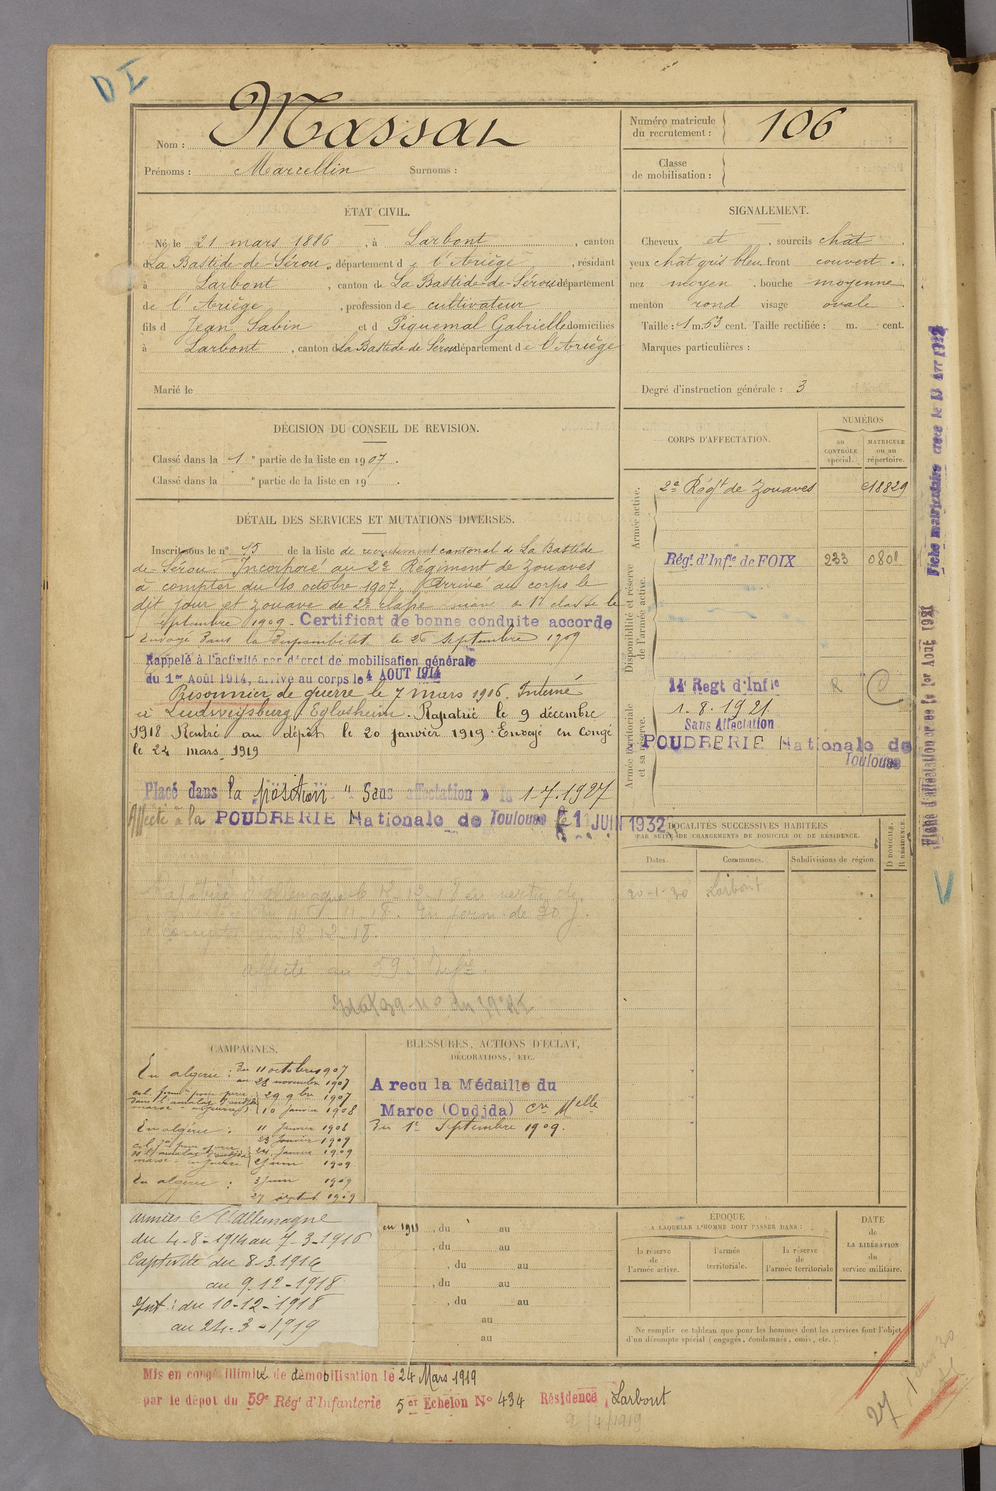 D I
Nom : Massal
Prénoms : Marcellin Surnoms :
Numéro matricule du recrutement : 106
Classe de mobilisation :
ÉTAT CIVIL.
Né le 21 mars 1886, à Larbont, canton
d La Bastide-de-Sérou, département d e l'Ariège, résidant
à Larbont, canton de La Bastide-de-Sérou département
de l'Ariège, profession de cultivateur
fils d Jean Sabin et d Piquemal Gabrielle domiciliés
à Larbont, canton d La Bastide de Sérou département d e l'Ariège
Marié le
SIGNALEMENT.
Cheveux et, sourcils chât
yeux chât gris bleu front couvert.
nez moyen, bouche moyenne
menton rond visage ovale
Taille : 1 m. 53 cent. Taille rectifiée : m. cent.
Marques particulières :
Degré d'instruction générale : 3
DÉCISION DU CONSEIL DE REVISION.
Classé dans la 1 e partie de la liste en 1907.
Classé dans la e partie de la liste en 19 .
DÉTAIL DES SERVICES ET MUTATIONS DIVERSES.
Inscrit sous le n° 15 de la liste de recrutement cantonal de La Bastide
de-Sérou. Incorporé au 2e Régiment de Zouaves
à compter du 10 octobre 1907, Arrivé au corps le
dit jour et zouave de 2e classe le
septembre 1909. Certificat de bonne conduite accordé
Envoyé dans la disponibilité le 26 septembre 1909
Rappelé à l'activité par décret de mobilisation générale
du 1er Août 1914, arrivé au corps le 4 AOUT 1914
Prisonnier de guerre le 7 mars 1916. Interné
à Ludwigsburg Eglosheim. Rapatrié le 9 décembre
1918. Rentré au dépôt le 20 janvier 1919. Envoyé en congé
le 24 mars 1919
Placé dans la position " Sans affectation " le 1-7-1927
Affecté à la POUDRERIE Nationale de Toulouse le 1 JUIN 1932
Rapatrié d'Allemagne le 12-12-18
à compter du 12-12-18.
affecté au 59e Infie.
CORPS D'AFFECTATION.
NUMÉROS
AU CONTRÔLE spécial.
MATRICULE ou au répertoire.
Armée active.
2e Régt de Zouaves 18829
Disponibilité et réserve de l'armée active.
Régt d'Infie de FOIX 233 0801
Armée territoriale et sa réserve.
14 Regt d'Infie
1.8.1921
Sans Affectation
POUDRERIE Nationale de
Toulouse
LOCALITÉS SUCCESSIVES HABITÉES
PAR SUITE DE CHANGEMENTS DE DOMICILE OU DE RÉSIDENCE.
Dates. Communes. Subdivisions de région. D DOMICILE. R RÉSIDENCE.
20-1-30 Larbont
CAMPAGNES.
En algérie : du 11 octobre 1907
au 28 novembre 1907
29 9bre 1907
10 janvier 1908
En algérie : 11 janvier 1908
23 janvier 1909
24 janvier 1909
2 juin 1909
En algérie : 3 juin 1909
27 septbre 1909
armées c/ l'allemagne
du 4-8-1914 au 7-3-1916
Captivité du 8-3-1916
au 9-12-1918
Int : du 10-12-1918
au 24-3-1919
BLESSURES, ACTIONS D'ÉCLAT,
DÉCORATIONS, ETC.
A reçu la Médaille du
Maroc (Oudjda)
du 1er Septembre 1909.
, du au
, du au
, du au
, du au
, du au
au
au
ÉPOQUE
A LAQUELLE L'HOMME DOIT PASSER DANS :
la réserve de l'armée active.
l'armée territoriale.
la réserve de l'armée territoriale
DATE de LA LIBÉRATION du service militaire.
Ne remplir ce tableau que pour les hommes dont les services font l'objet
d'un décompte spécial (engagés, condamnés, omis, etc.).
Mis en congé illimité de démobilisation le 24 Mars 1919
par le dépôt du 59e Régt d'Infanterie 5er Echelon N° 434 Résidence, Larbont
9/4/1919
27
Fiche matriculaire créée le 13 avr 1932
Fiche d'affectation créée le 1er Août 1921
V